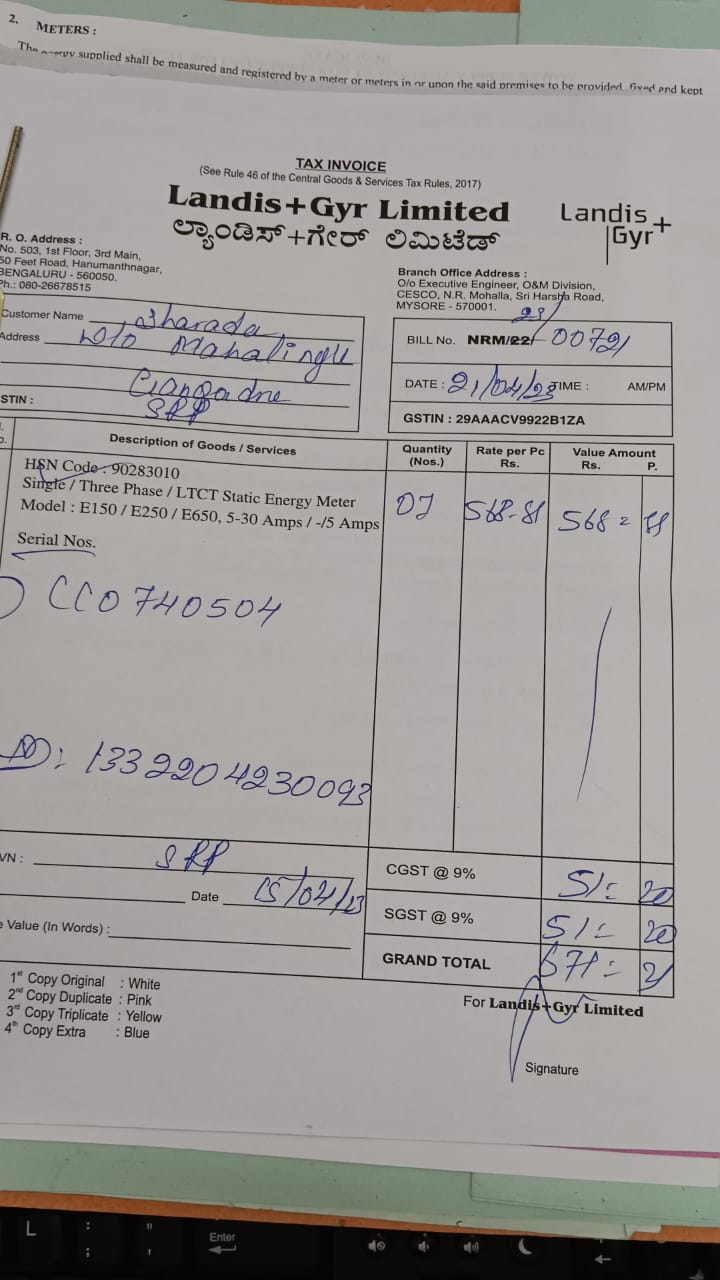 2. METERS :
The energy supplied shall be measured and registered by a meter or meters in or upon the said premises to be provided, fixed and kept
TAX INVOICE
(See Rule 46 of the Central Goods & Services Tax Rules, 2017)
Landis+Gyr Limited
ಲ್ಯಾಂಡಿಸ್+ಗೇರ್ ಲಿಮಿಟೆಡ್
Landis+
Gyr
R. O. Address :
No. 503, 1st Floor, 3rd Main,
50 Feet Road, Hanumanthnagar,
BENGALURU - 560050.
Ph.: 080-26678515
Branch Office Address :
O/o Executive Engineer, O&M Division,
CESCO, N.R. Mohalla, Sri Harsha Road,
MYSORE - 570001.
Customer Name Sharada
Address W/o Mahalingu
SRP
STIN :
23/
BILL No. NRM/22/ 00721
DATE : 21/04/23 TIME : AM/PM
GSTIN : 29AAACV9922B1ZA
Description of Goods / Services
Quantity (Nos.)
Rate per Pc Rs.
Value Amount Rs. P.
HSN Code : 90283010
Single / Three Phase / LTCT Static Energy Meter
Model : E150 / E250 / E650, 5-30 Amps / -/5 Amps
01 568-81 568=81
Serial Nos.
CC0740504
1332204230093
VN : SRP
Date 15/04/23
e Value (In Words) :
CGST @ 9% 51= 20
SGST @ 9% 51= 20
GRAND TOTAL 671= 21
1st Copy Original : White
2nd Copy Duplicate : Pink
3rd Copy Triplicate : Yellow
4th Copy Extra : Blue
For Landis+Gyr Limited
Signature
L
:
;
"
'
Enter